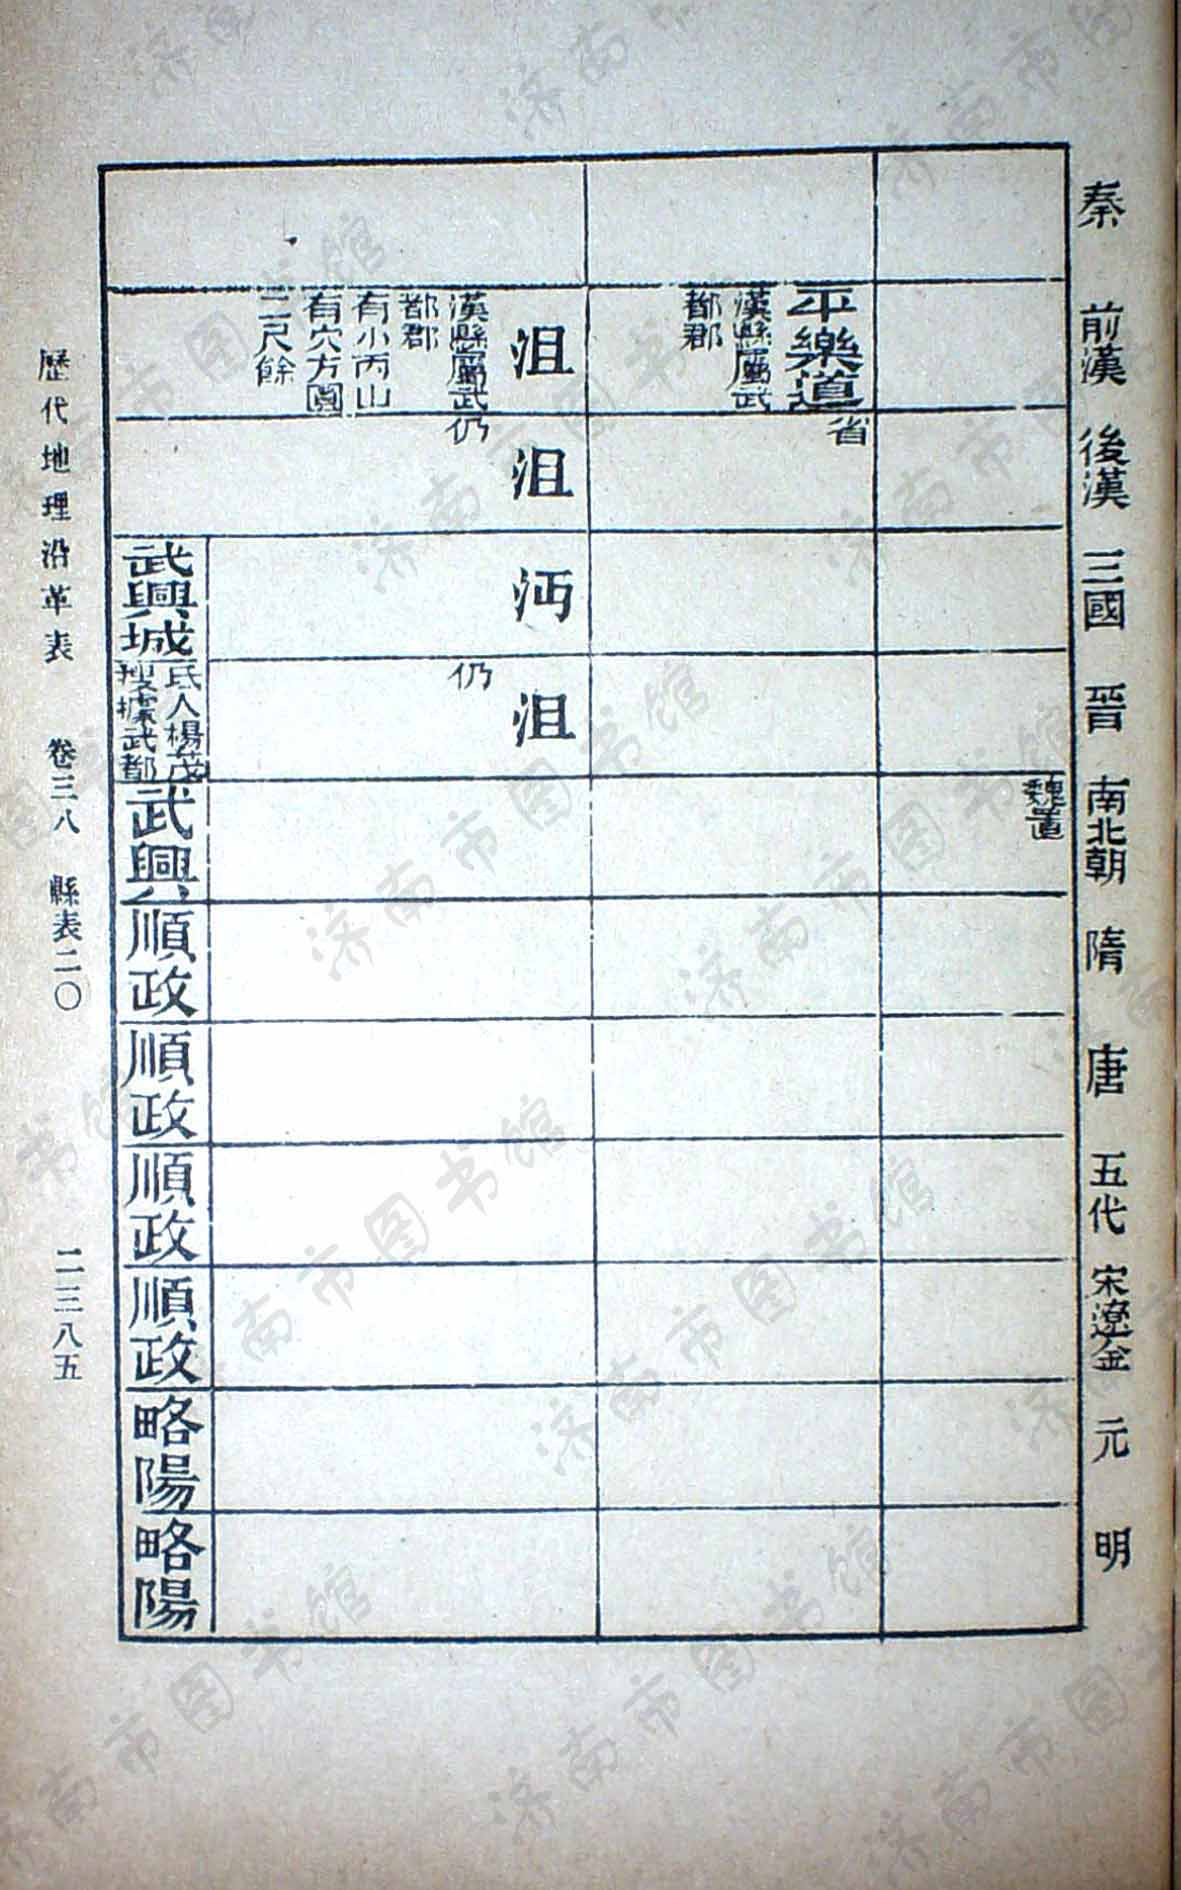 秦
前漢
後漢
三國
晉
南北朝
隋
唐
五代
宋遼金
元
明
魏置
平樂道
漢縣屬武
都郡
省
沮
漢縣屬武
都郡
有小丙山
有穴方圓
二尺餘
沮
仍
沔
沮
仍
武興城
氐人楊茂
搜據武都
武興
順政
順政
順政
順政
略陽
略陽
歷代地理沿革表 卷三八 縣表二〇 二三八五
济南市图书馆